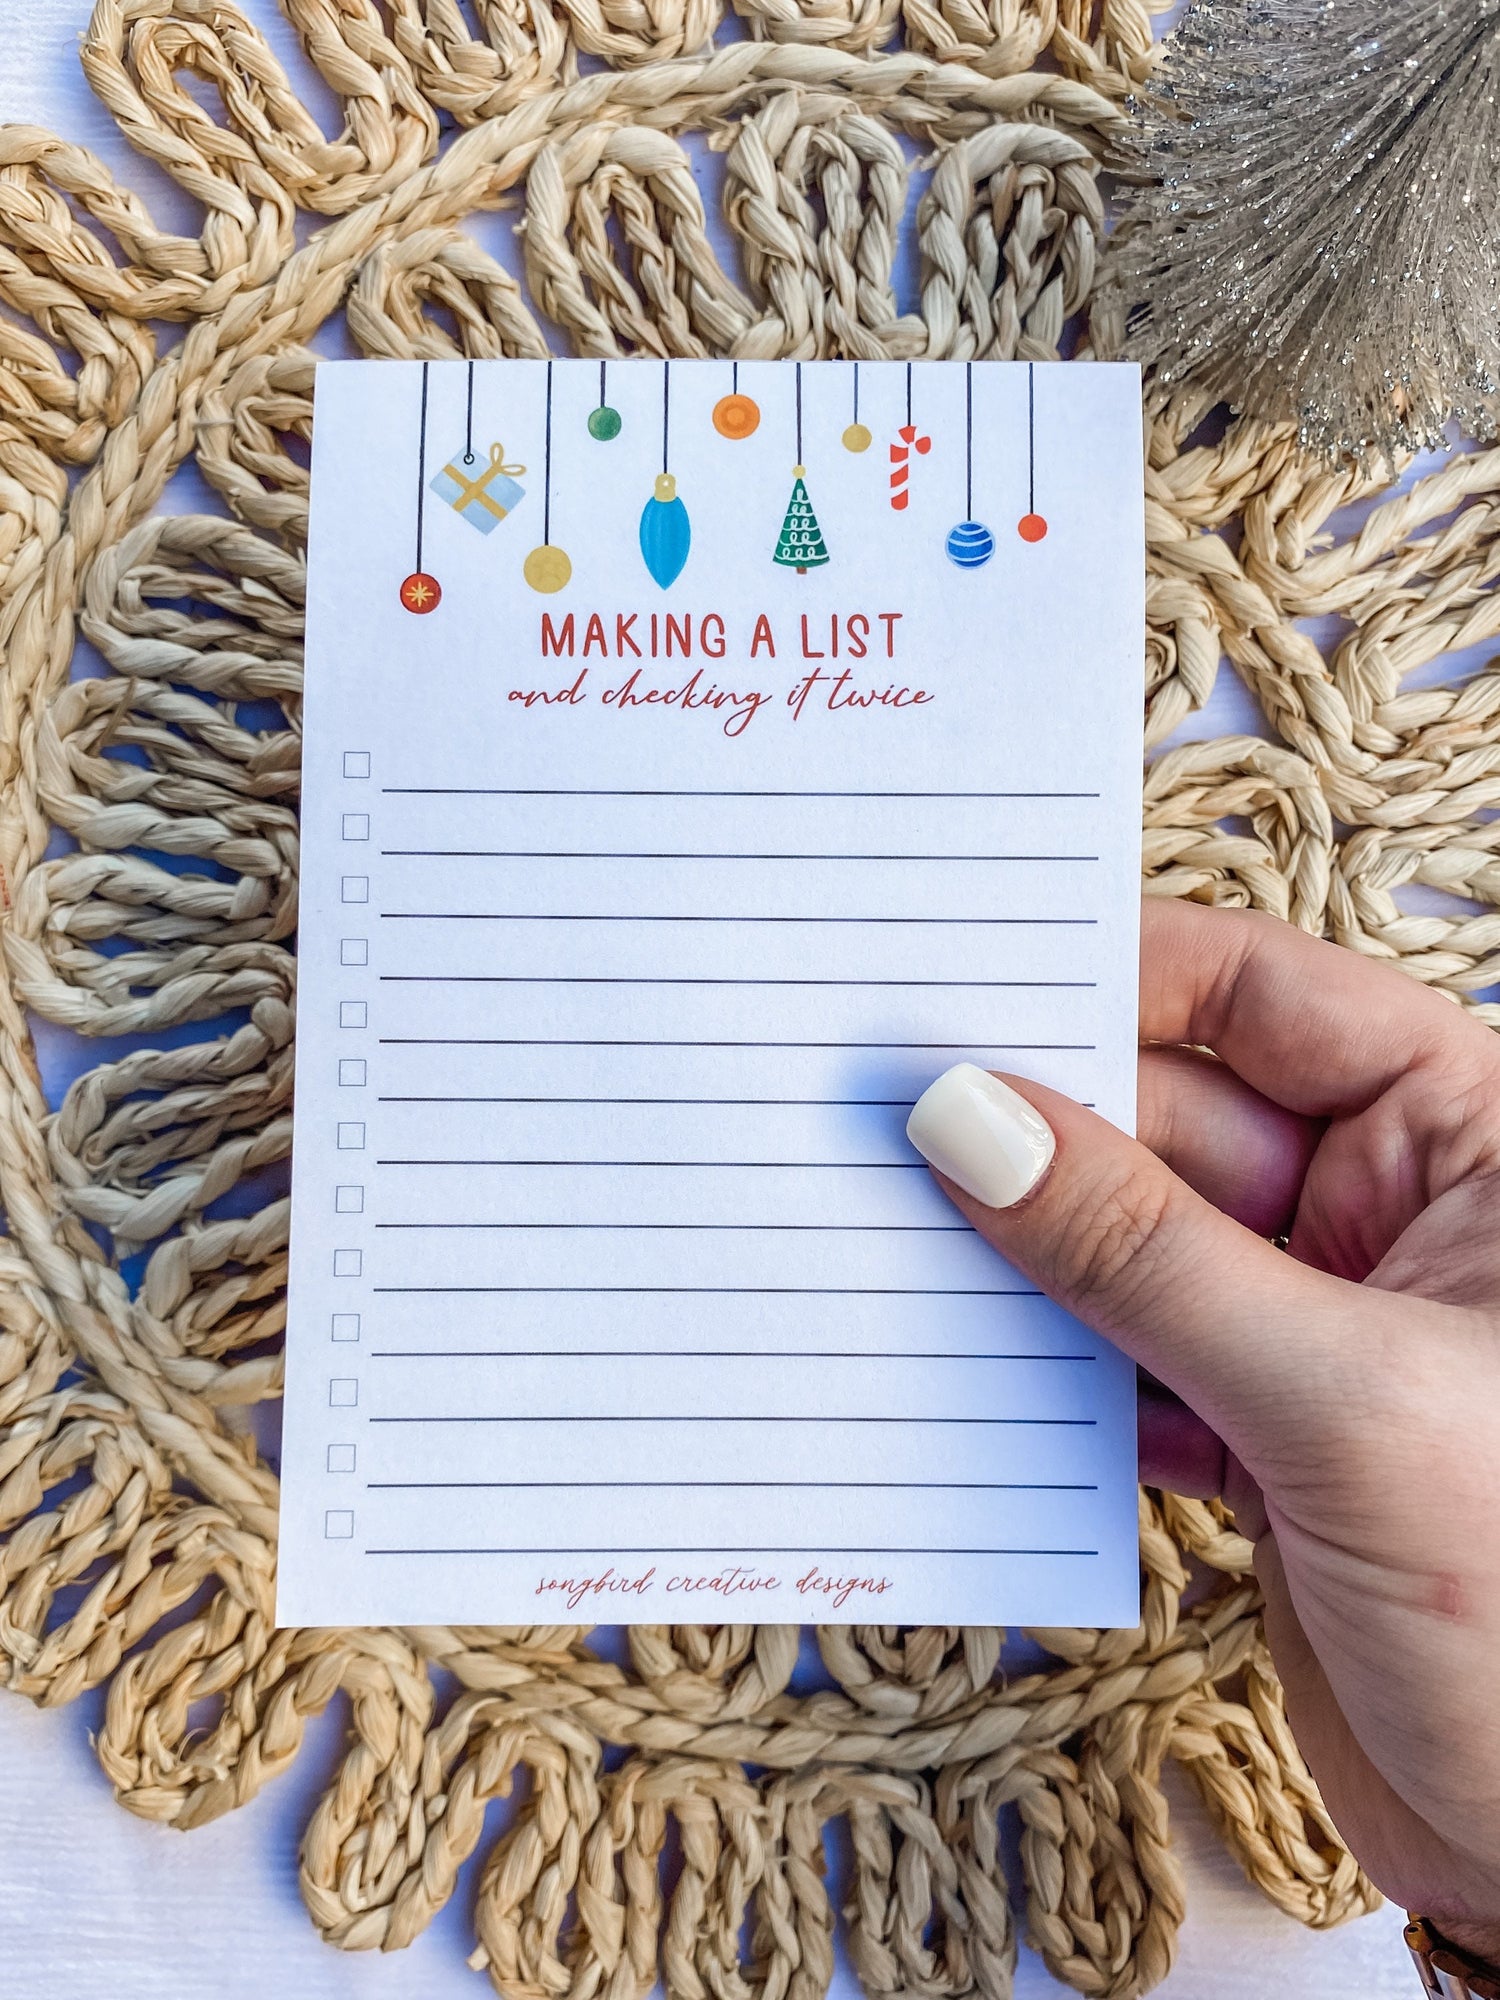 MAKING A LIST
and checking it twice
songbird creative designs